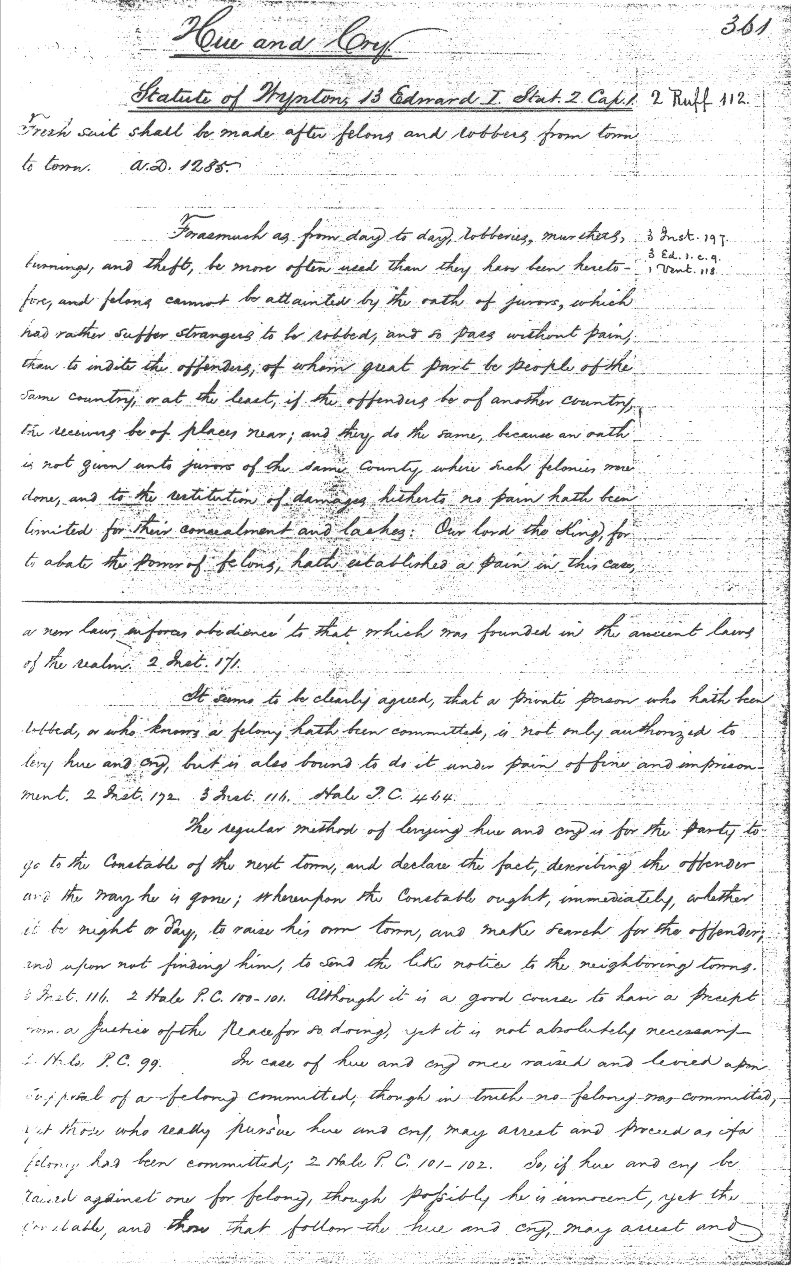 361
Hue and Cry.
Statute of Wynton, 13 Edward I. Stat. 2. Cap. 1. 2 Ruff 112.
Fresh suit shall be made after felons and robbers from town
to town. A.D. 1285.
Forasmuch as from day to day, robberies, murthers, 3 Inst. 197.
burnings, and theft, be more often used than they have been hereto- 3 Ed. 1. c. 9.
1 Vent. 118
fore, and felons cannot be attainted by the oath of jurors, which
had rather suffer strangers to be robbed, and so pass without pain,
than to indite the offenders, of whom great part be people of the
same country, or at the least, if the offenders be of another country,
the receivers be of places near; and they do the same, because an oath
is not given unto jurors of the same County where such felonies were
done, and to the restitution of damages hitherto no pain hath been
limited for their concealment and lashes: Our lord the King, for
to abate the power of felons, hath established a pain in this case,
a new law, enforces obedience to that which was founded in the ancient laws
of the realm. 2 Inst. 171.
It seems to be clearly agreed, that a private person who hath been
robbed, or who knows a felony hath been committed, is not only authorized to
levy hue and cry, but is also bound to do it under pain of fine and imprison-
ment. 2 Inst. 172. 3 Inst. 116. Hale P.C. 464.
The regular method of levying hue and cry is for the party to
go to the Constable of the next town, and declare the fact, describing the offender
and the way he is gone; whereupon the Constable ought, immediately, whether
it be night or day, to raise his own town, and make search for the offender;
and upon not finding him, to send the like notice to the neighboring towns.
3 Inst. 116. 2 Hale P.C. 100-101. Although it is a good course to have a precept
from a Justice of the Peace for so doing, yet it is not absolutely necessary
2 Hale P.C. 99. In case of hue and cry once raised and levied upon
supposal of a felony committed, though in truth no felony was committed,
yet those who really pursue hue and cry, may arrest and proceed as if a
felony had been committed; 2 Hale P.C. 101-102. So, if hue and cry be
raised against one for felony, though possibly he is innocent, yet the
constable, and those that follow the hue and cry, may arrest and